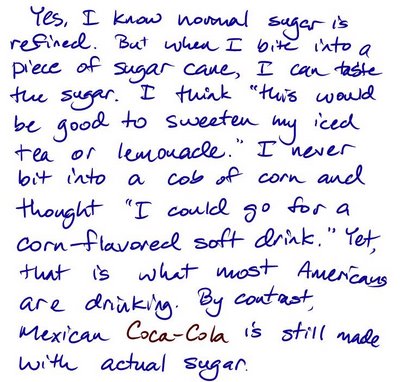 Yes, I know normal sugar is
refined. But when I bite into a
piece of sugar cane, I can taste
the sugar. I think "this would
be good to sweeten my iced
tea or lemonade." I never
bit into a cob of corn and
thought "I could go for a
corn-flavored soft drink." Yet,
that is what most Americans
are drinking. By contrast,
Mexican Coca-Cola is still made
with actual sugar.